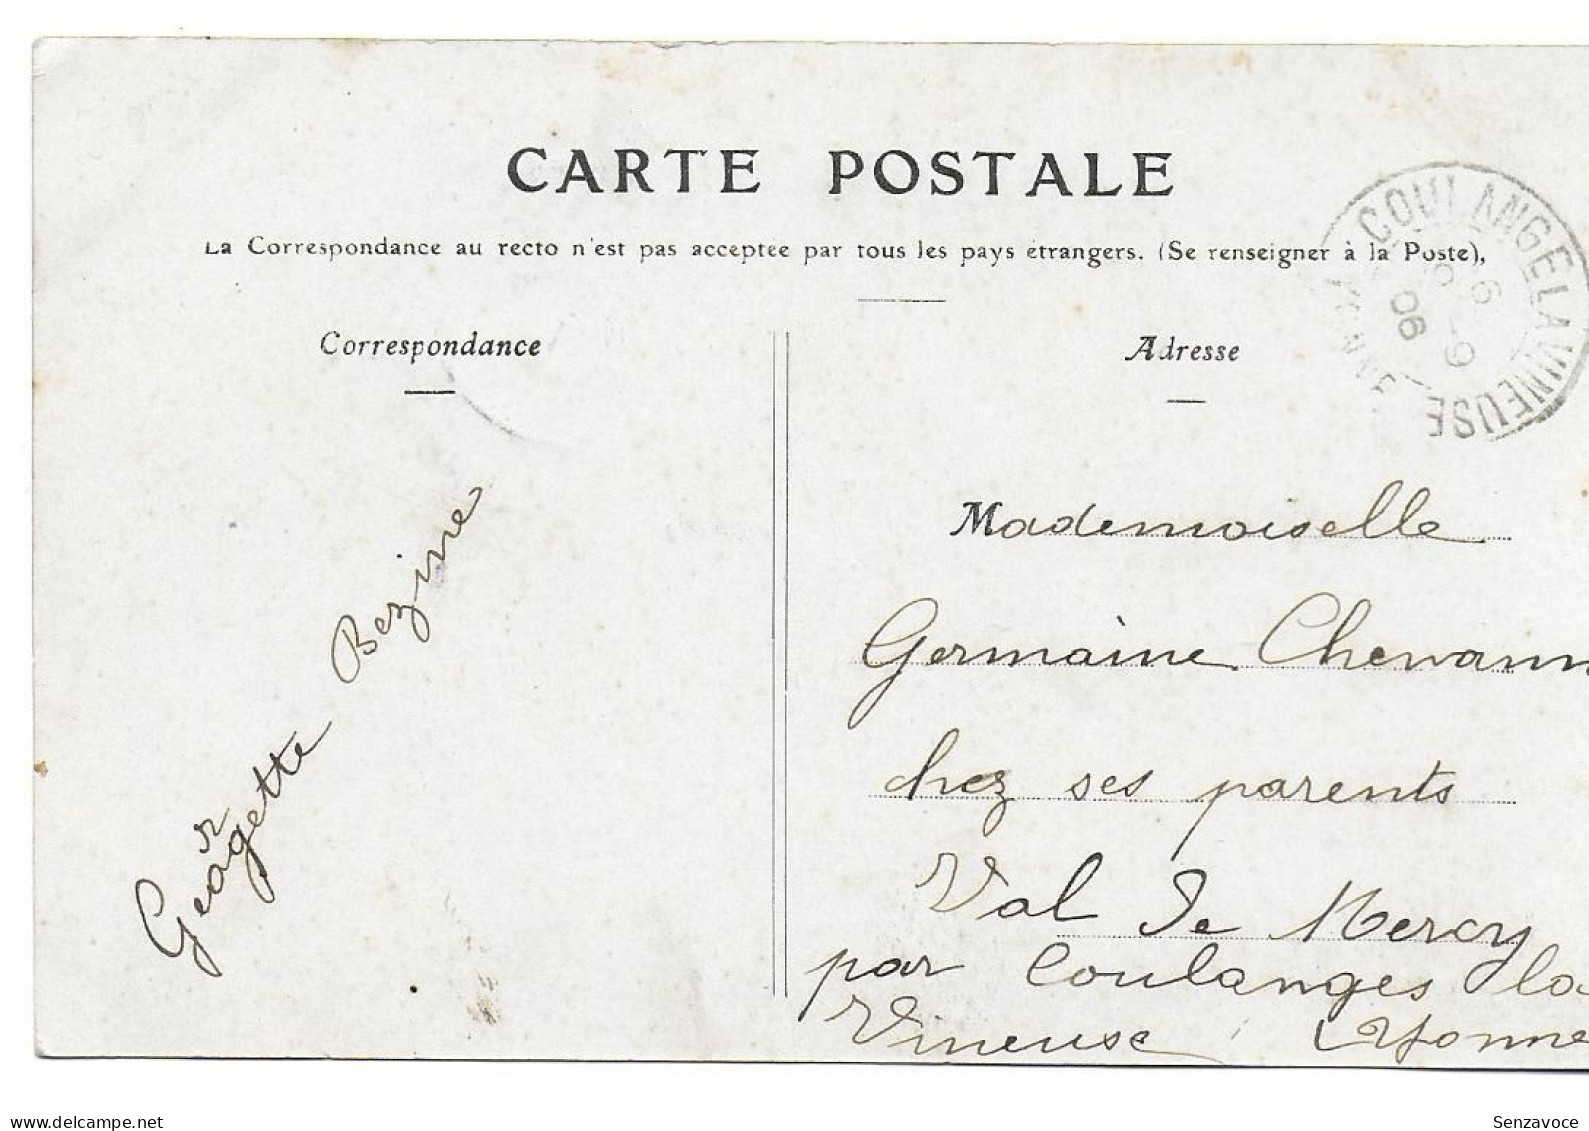 CARTE POSTALE
La Correspondance au recto n'est pas acceptée par tous les pays étrangers. (Se renseigner à la Poste),
COULANGE LA VINEUSE
YONNE
06
Correspondance
Adresse
Georgette Bezine
Mademoiselle
Germaine Chevann
chez ses parents
Val de Mercy
par Coulanges la
Vineuse (Yonne
www.delcampe.net
Senzavoce